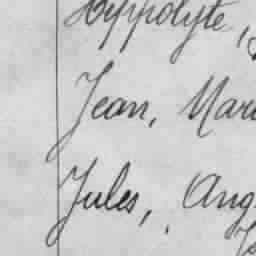 Hyppolyte,
Jean, Mari
Jules, Aug